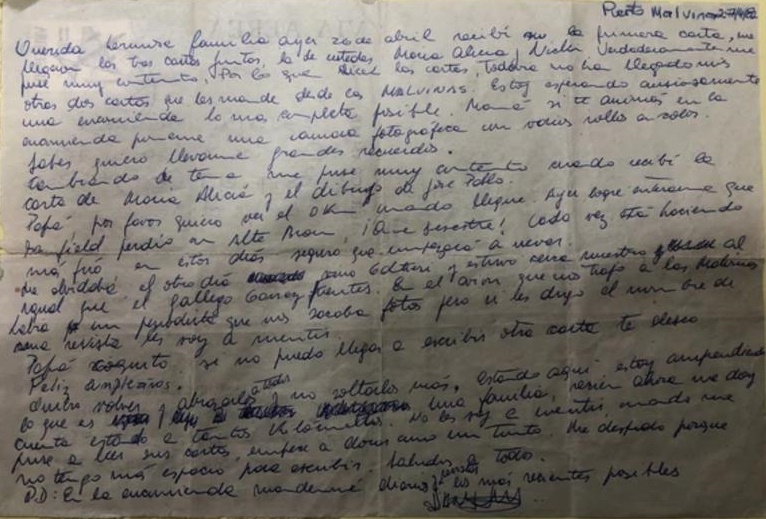 Puerto Malvinas 27/4/82
Querida hermosa familia ayer 26 de abril recibí la primera carta, me
llegaron las tres cartas juntas, la de ustedes, Maria Alicia, Verdaderamente me
puse muy contento. Por lo que las cartas, todavia no han llegado mis
otras dos cartas que les mande desde las MALVINAS. Estoy esperando ansiosamente
una encomienda lo mas completa posible. Mamá si te animas en la
encomienda poneme una camara fotografica con varios rollos a color.
Sabes quiero llevarme grandes recuerdos.
Cambiando de tema me puse muy contento cuando recibi la
carta de Maria Alicia y el dibujo de Jose Pablo.
Papá, por favor quiero ver el OKm cuando llegue. Ayer logre enterarme que
Banfield perdio con Alte Brown, ¡Que desastre! Cada vez está haciendo
mas frio en estos dias seguro que empezará a nevar.
Me olvidaba el otro dia vino Galtieri y estuvo cerca nuestro al
igual que el gallego Garay Fuentes. En el avion que nos trajo a las Malvinas
habia un periodista que nos sacaba fotos pero si les digo el nombre de
una revista les voy a mentir.
Papá si no puedo llegar a escribir otra carta te deseo
Feliz cumpleaños.
Quiero volver y abrazarlos a todos y no soltarlos más, estando aquí estoy aprendiendo
lo que es una familia, recien ahora me doy
cuenta estando a tantos kilometros. No les voy a mentir, cuando me
puse a leer sus cartas, empece a llorar un tanto. Me despido porque
no tengo más espacio para escribir. Saludos a todos.
P.D: En la encomienda mandenme diarios y revistas los más recientes posibles